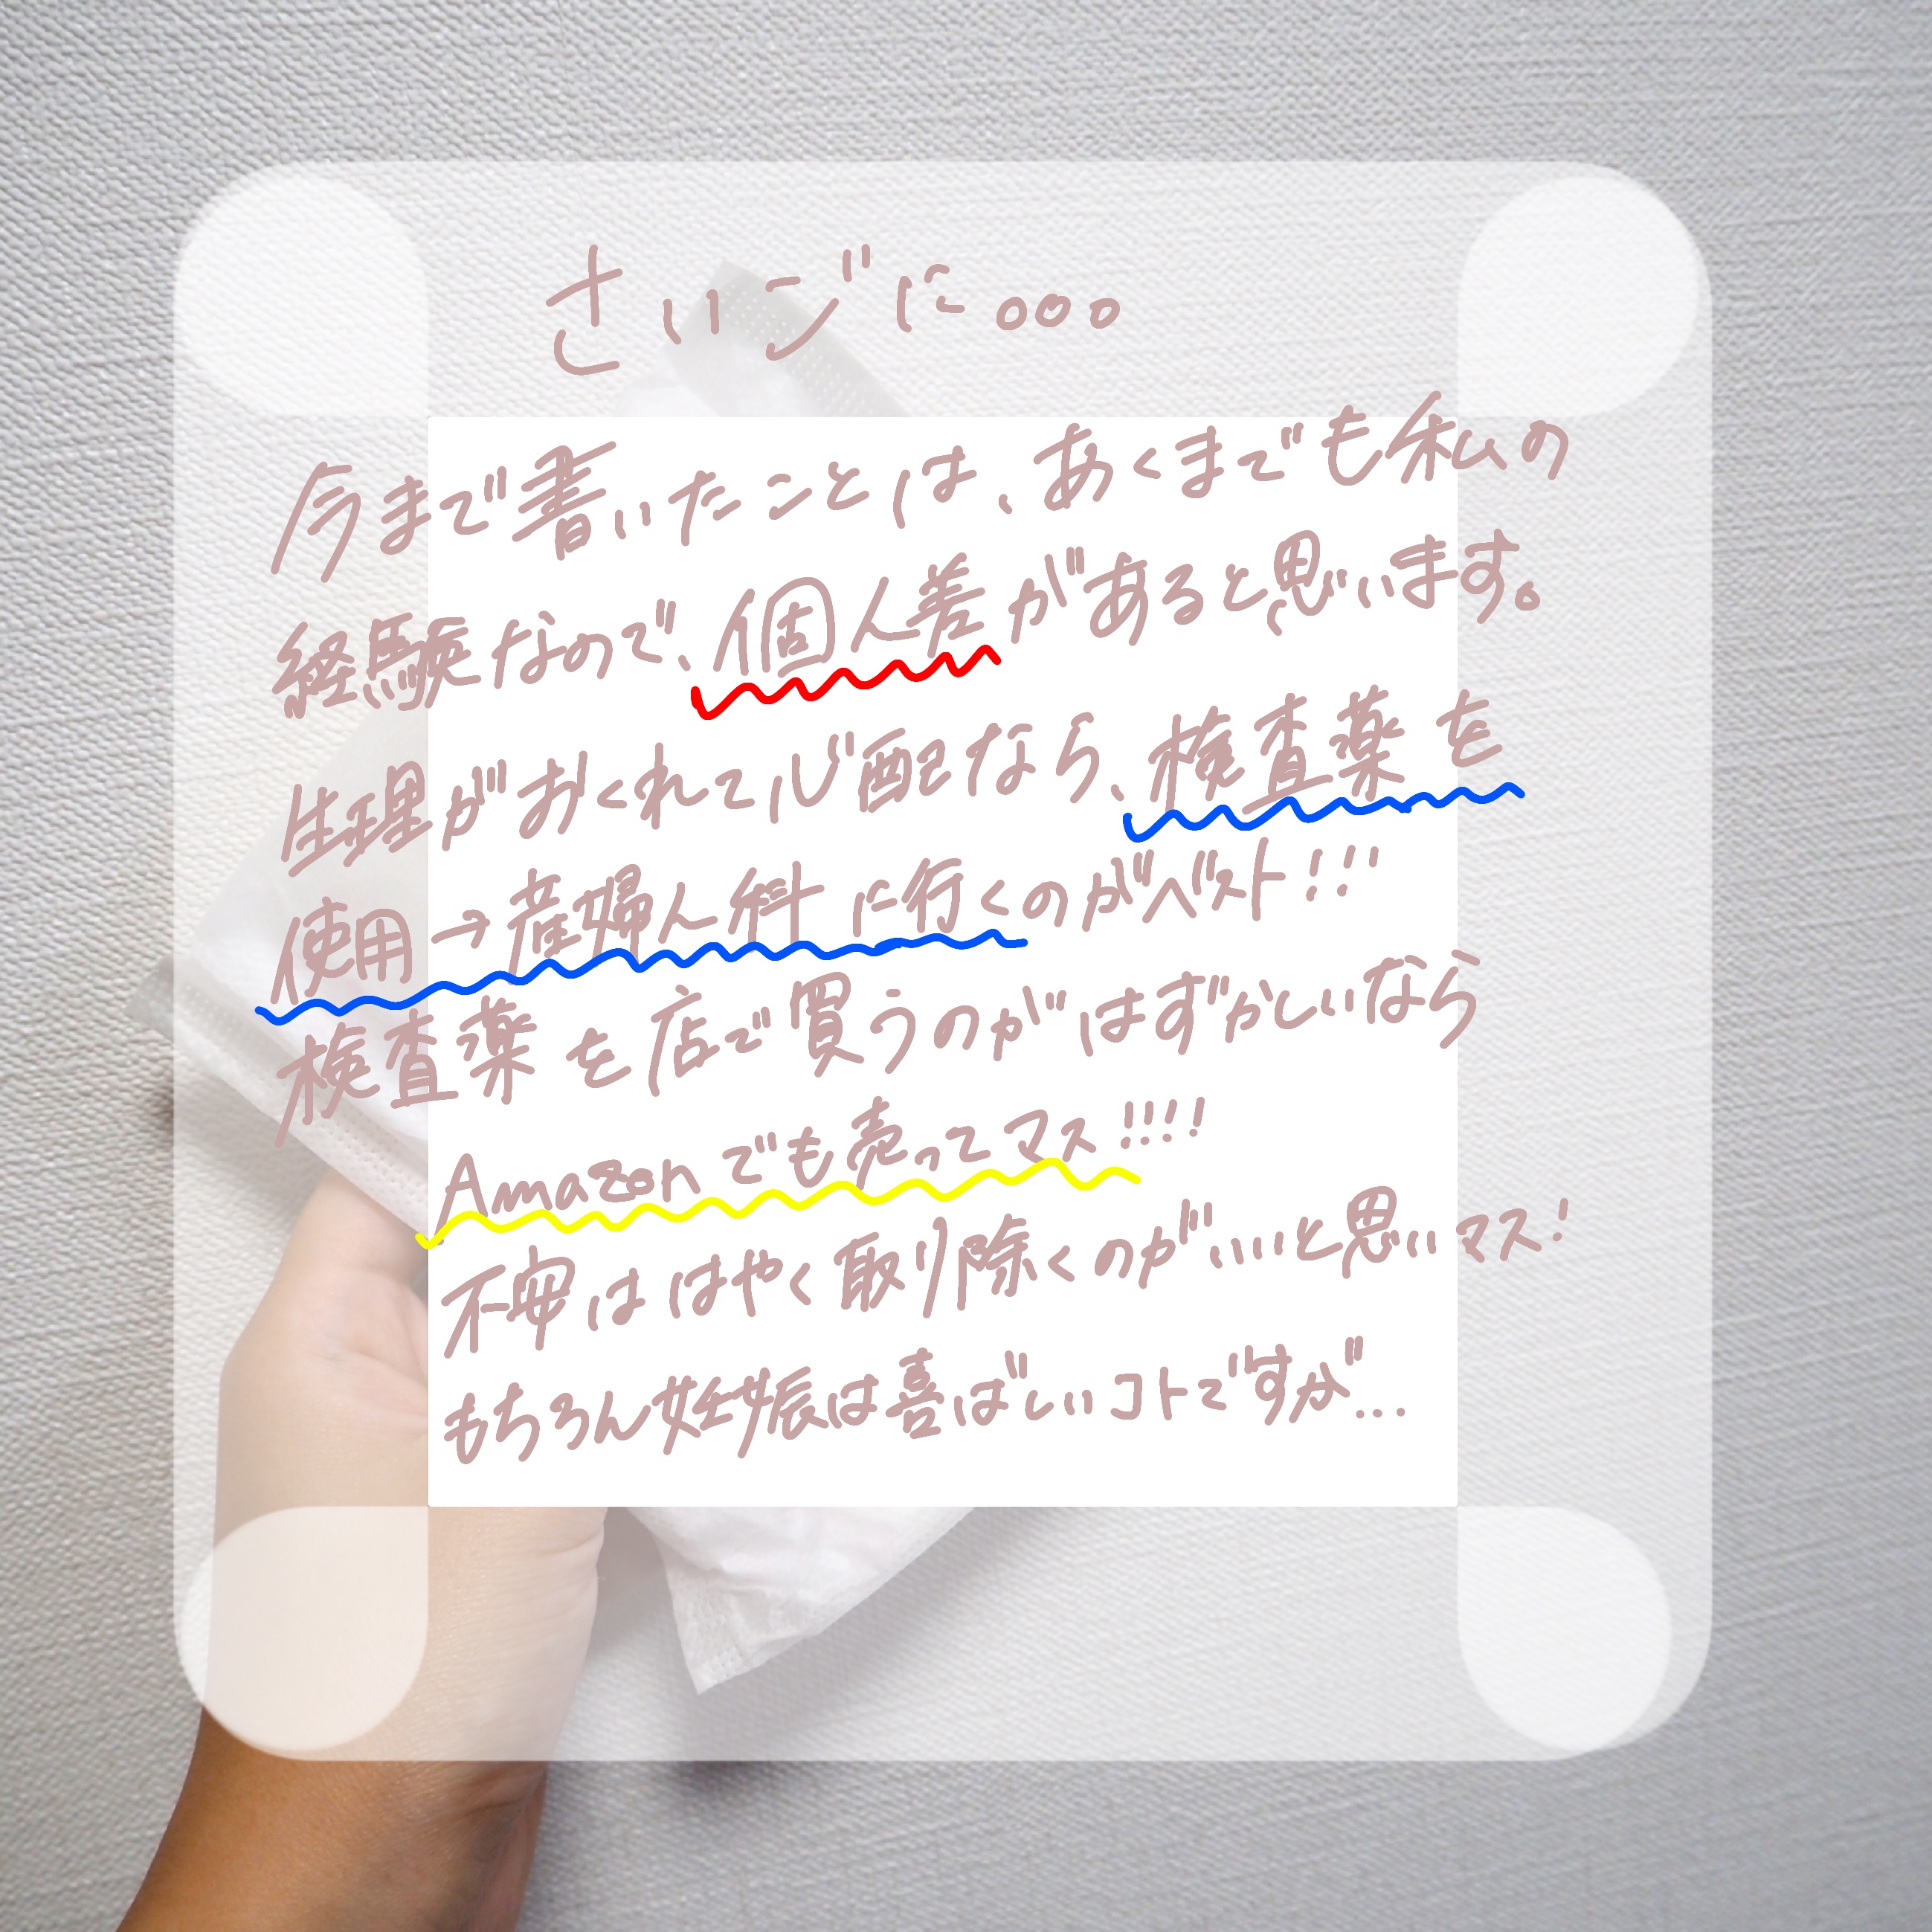 さいごに。。。
今まで書いたことは、あくまでも私の
経験なので、個人差があると思います。
生理がおくれて心配なら、検査薬を
使用→産婦人科に行くのがベスト!!!
検査薬を店で買うのがはずかしいなら
Amazonでも売ってマス!!!!
不安ははやく取り除くのがいいと思いマス!
もちろん妊娠は喜ばしいコトですが...